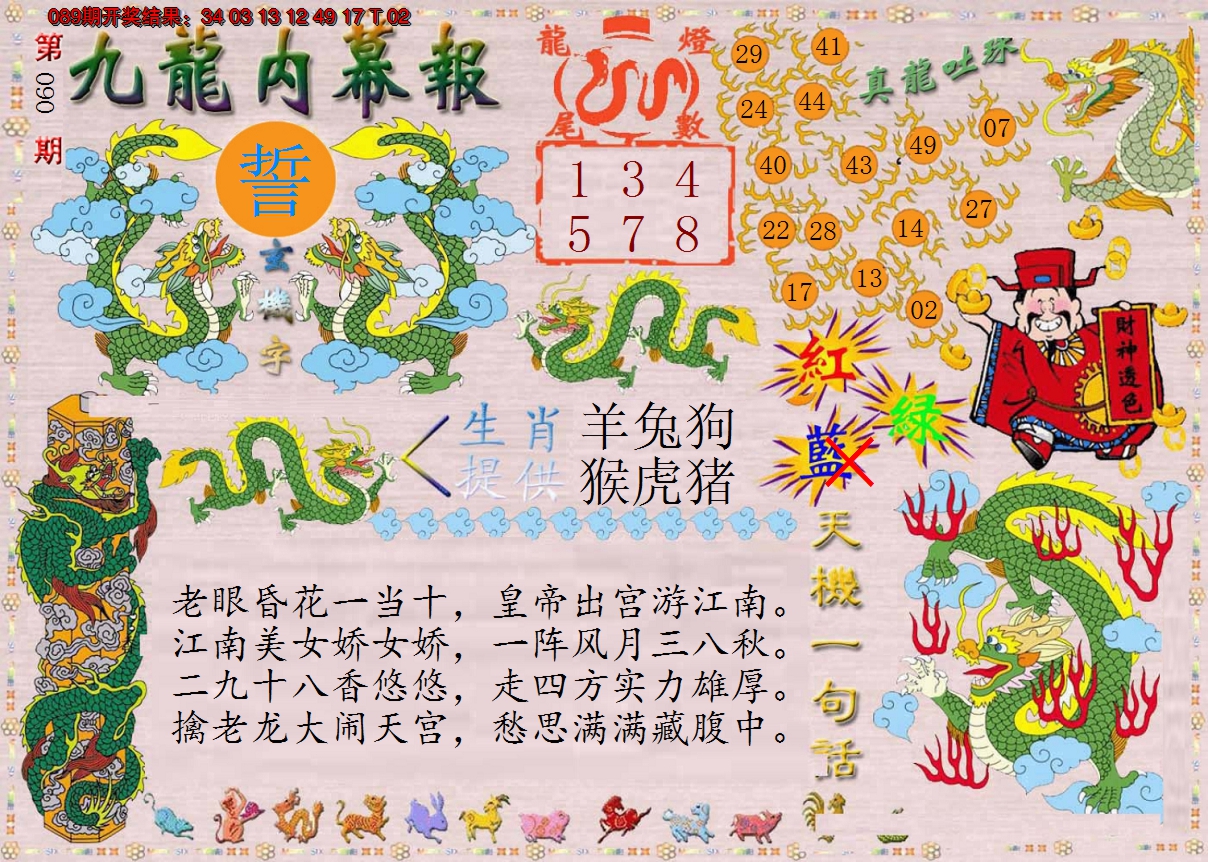 089期开奖结果：34 03 13 12 49 17 T 02
第090期
九龍内幕報
誓
玄機字
龍燈尾數
1 3 4
5 7 8
真龍吐珠
29 41
24 44
40 43 49 07
22 28 14 27
17 13 02
紅
綠
藍
財神透色
生肖提供
羊兔狗
猴虎猪
天機一句话
老眼昏花一当十，皇帝出宫游江南。
江南美女娇女娇，一阵风月三八秋。
二九十八香悠悠，走四方实力雄厚。
擒老龙大闹天宫，愁思满满藏腹中。